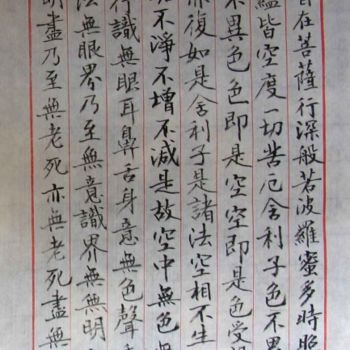 自在菩薩行深般若波羅蜜多時照
蘊皆空度一切苦厄舍利子色不異
不異色色即是空空即是色受想
亦復如是舍利子是諸法空相不生
垢不淨不增不減是故空中無色無
行識無眼耳鼻舌身意無色聲
法無眼界乃至無意識界無無明
明盡乃至無老死亦無老死盡無